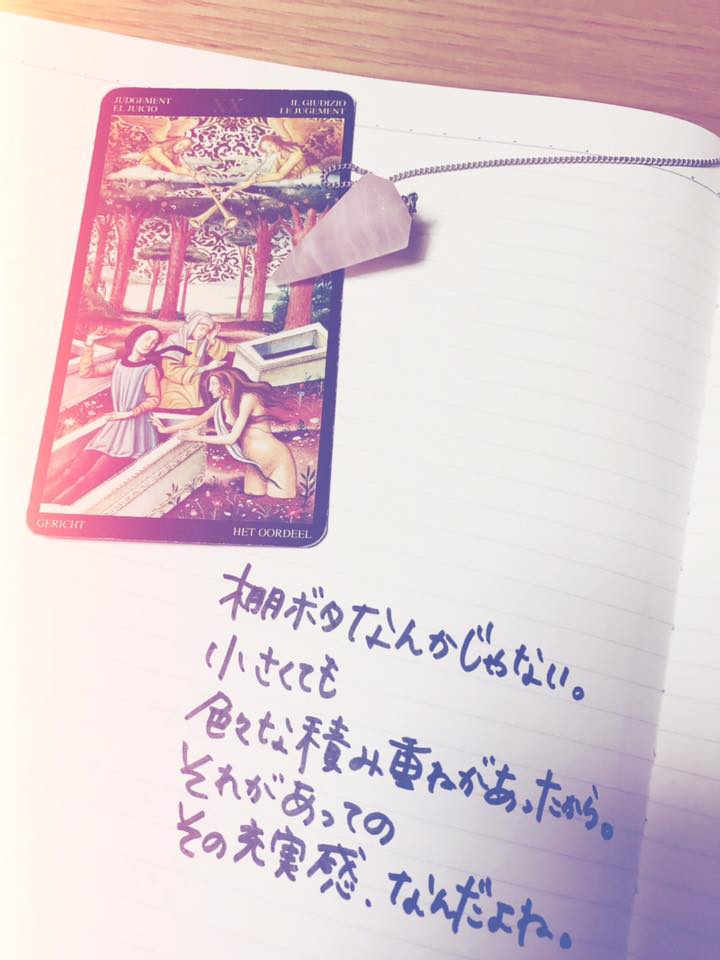 JUDGEMENT
EL JUICIO
XX
IL GIUDIZIO
LE JUGEMENT
GERICHT
HET OORDEEL
棚ボタなんかじゃない。
小さくても
色々な積み重ねがあったから。
それがあっての
その充実感、なんだよね。